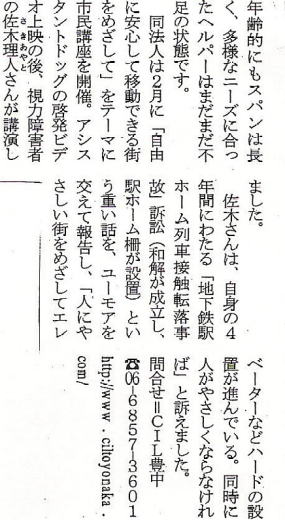 年齢的にもスパンは長
く、多様なニーズに合っ
たヘルパーはまだまだ不
足の状態です。
同法人は2月に「自由
に安心して移動できる街
をめざして」をテーマに
市民講座を開催。アシス
タントドッグの啓発ビデ
オ上映の後、視力障害者
の佐木理人さんが講演し
さきあやと
ました。
佐木さんは、自身の4
年間にわたる「地下鉄駅
ホーム列車接触転落事
故」訴訟(和解が成立し、
駅ホーム柵が設置)とい
う重い話を、ユーモアを
交えて報告し、「人にや
さしい街をめざしてエレ
ベーターなどハードの設
置が進んでいる。同時に
人がやさしくならなけれ
ば」と訴えました。
問合せ=CIL豊中
☎06-6857-3601
http://www.ciltoyonaka.
com/